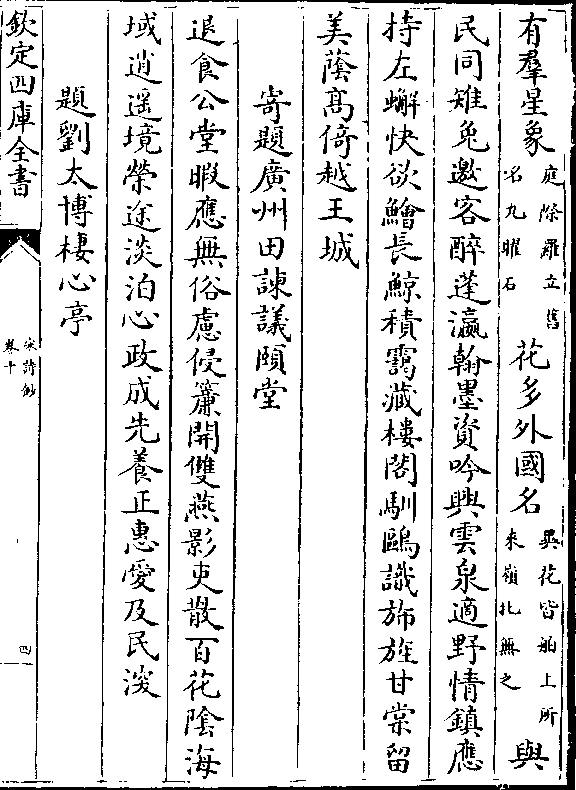 有羣星象庭除羅立舊名九曜石花多外國名異花皆舶上所來嶺北無之與
民同雉兔邀客醉蓬瀛翰墨資吟興雲泉適野情鎮應
持左蠏快欲鱠長鯨積靄藏樓閣馴鷗識斾旌甘棠留
美蔭髙倚越王城
寄題廣州田諫議頤堂
退食公堂暇應無俗慮侵簾開雙燕影吏散百花陰海
域逍遥境榮途淡泊心政成先養正惠愛及民深
題劉太博棲心亭
欽定四庫全書
宋詩鈔
卷十
四